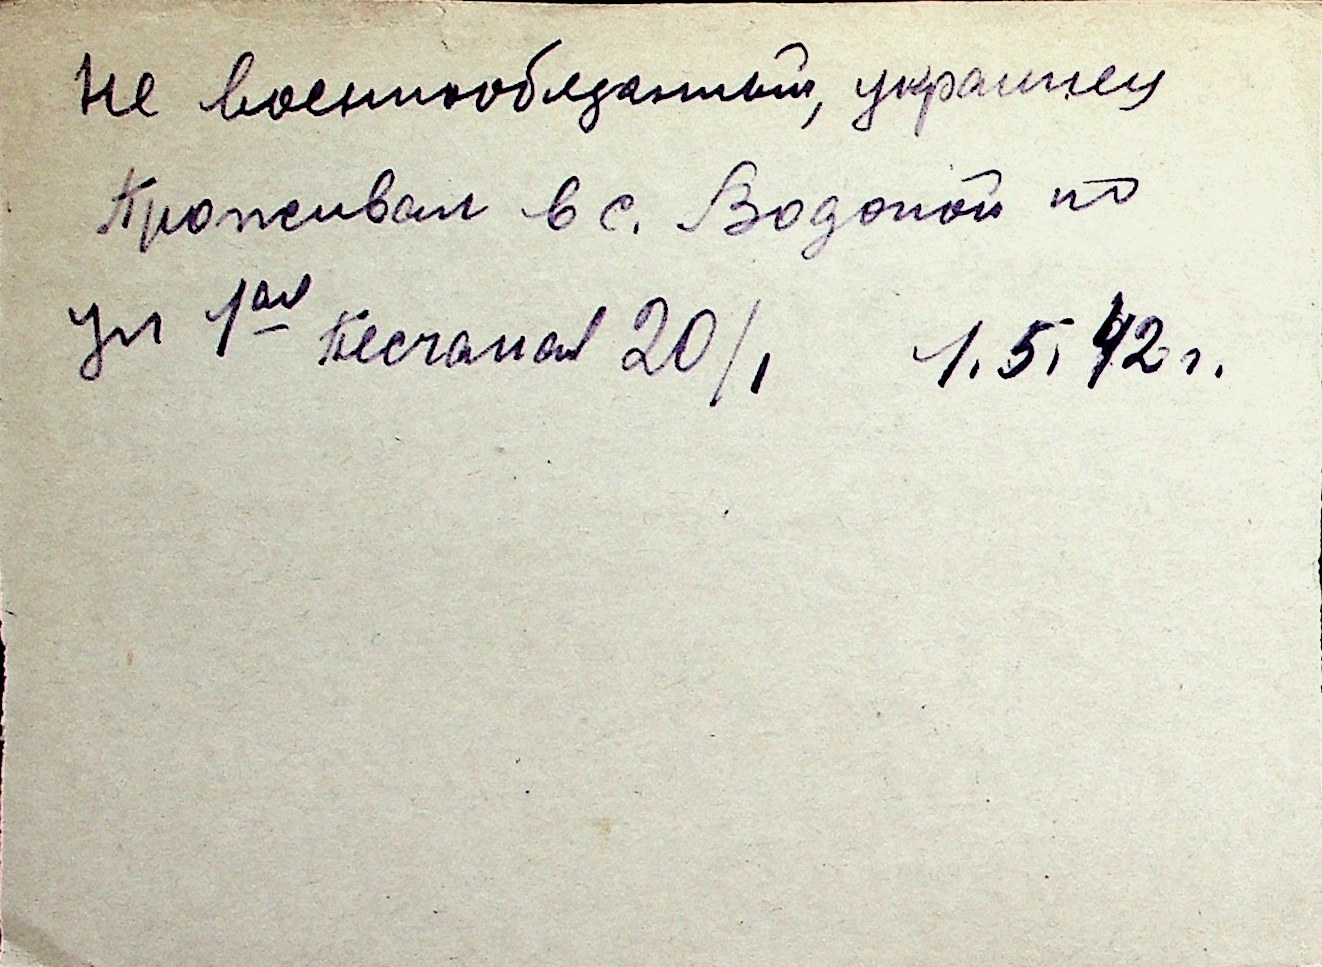 Не военнообязанный, украинец
Проживал в с. Водопой по
ул 1ая Песчаная 20/1 1.5.42 г.